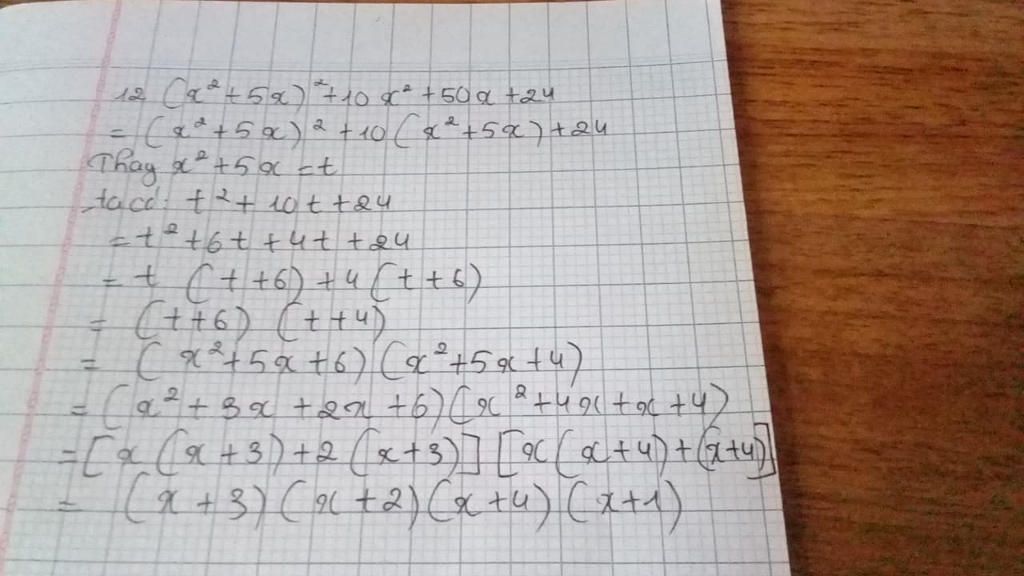 12 (x² + 5x)² + 10x² + 50x + 24
= (x² + 5x)² + 10(x² + 5x) + 24
Thay x² + 5x = t
ta có: t² + 10t + 24
= t² + 6t + 4t + 24
= t (t + 6) + 4(t + 6)
= (t + 6) (t + 4)
= (x² + 5x + 6)(x² + 5x + 4)
= (x² + 3x + 2x + 6)(x² + 4x + x + 4)
= [x(x + 3) + 2(x + 3)] [x(x + 4) + (x + 4)]
= (x + 3)(x + 2)(x + 4)(x + 1)